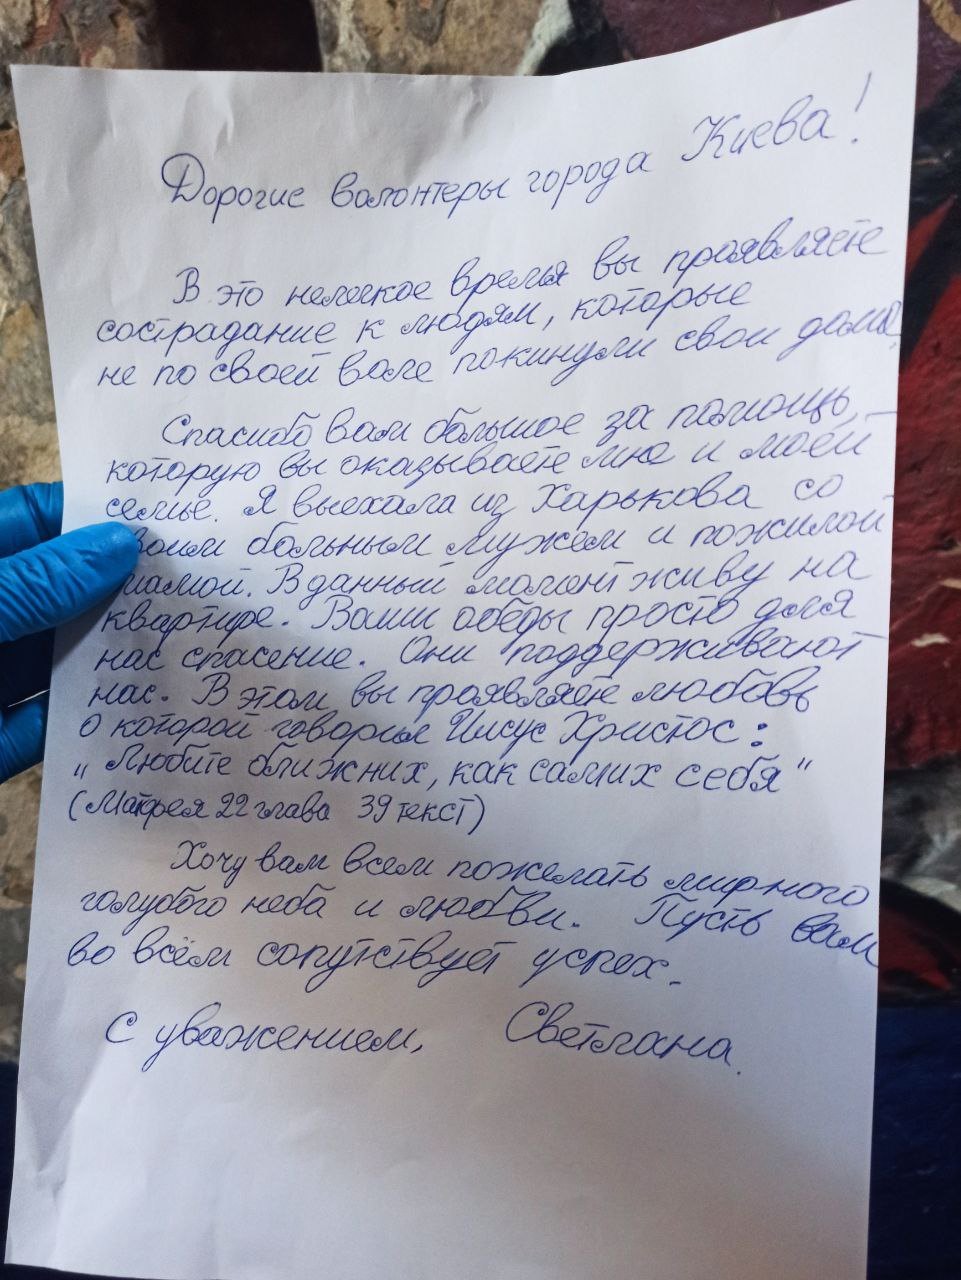 Дорогие волонтеры города Киева!
В это нелегкое время вы проявляете
сострадание к людям, которые
не по своей воле покинули свои дома.
Спасибо вам большое за помощь,
которую вы оказываете мне и моей
семье. Я выехала из Харькова со
своим больным мужем и пожилой
мамой. В данный момент живу на
квартире. Ваши обеды просто для
нас спасение. Они поддерживают
нас. В этом вы проявляете любовь
о которой говорил Иисус Христос:
„Любите ближних, как самих себя"
(Матфея 22 глава 39 текст)
Хочу вам всем пожелать мирного
голубого неба и любви. Пусть вам
во всём сопутствует успех.
С уважением, Светлана.